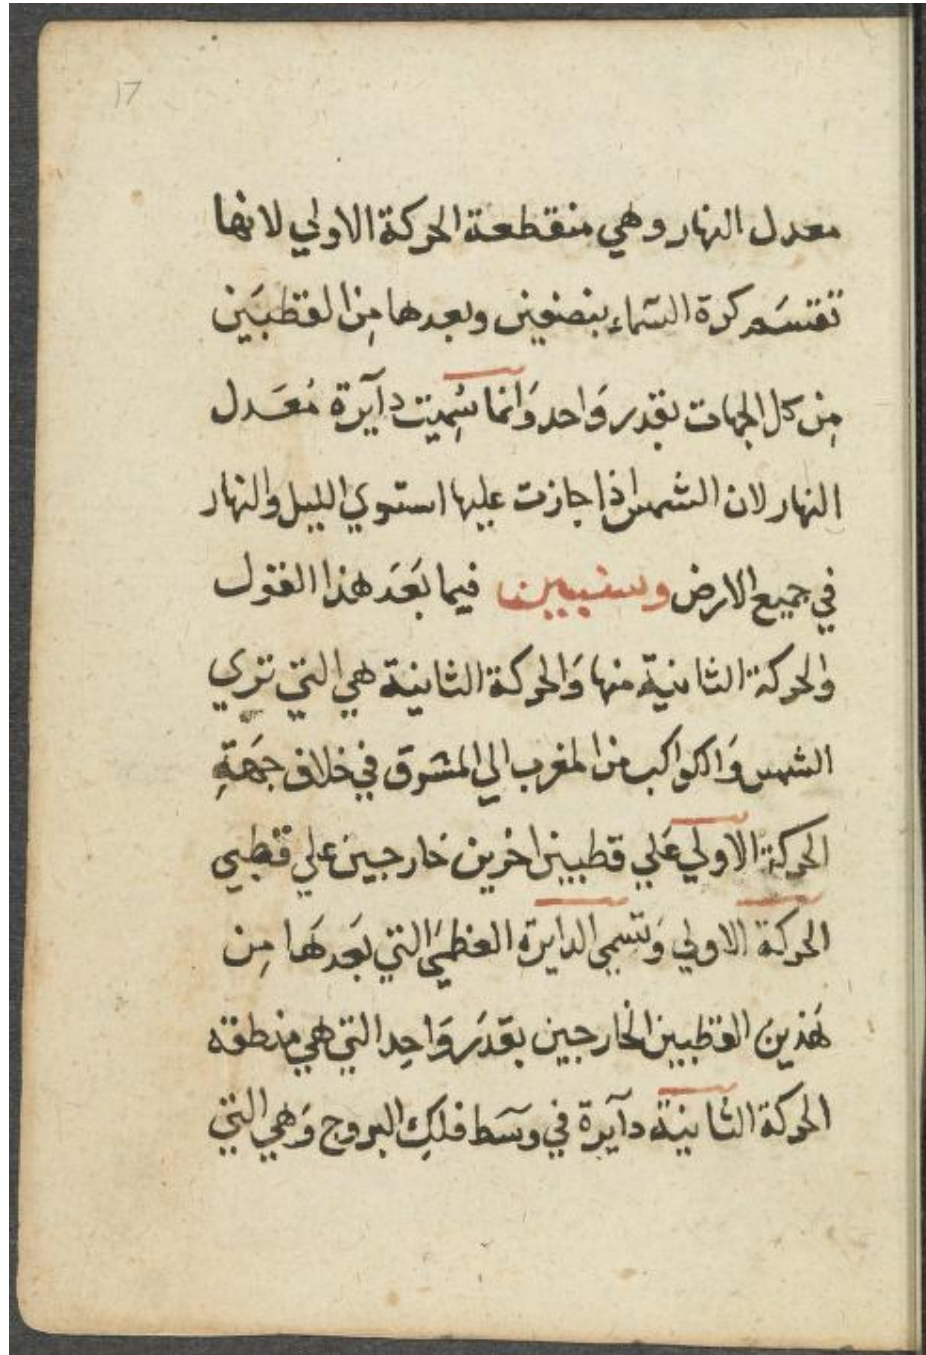 17
معدل النهار وهي منقطعة الحركة الاولي لانها
تقتسَم كرة السّماء بنصفين وبعدها مِن القطبَين
مِن كل الجهات بقدر وَاحد وَانما سُمِيت دآيرة مُعَدل
النهار لان الشمس اذا جازت عليها استوي الليل والنهار
في جميع الارض وسنبين فيما بَعَد هذا القول
والحركة الثانية منها وَالحركة الثانية هي التي تري
الشمس وَالكواكب من المغرب الي المشرق في خلاف جهَةِ
الحركة الاولي عَلي قطبين اخرين خارجين علي قطبي
الحركة الاولي وَتسمي الدايرة العظمَي التي بَعَدهَا مِن
هَذين القطبين الخارجين بقَدَر وَاحِد التي هي منطقة
الحركة الثانية دآيرة في وسَط فلكِ البروج وَهي التي